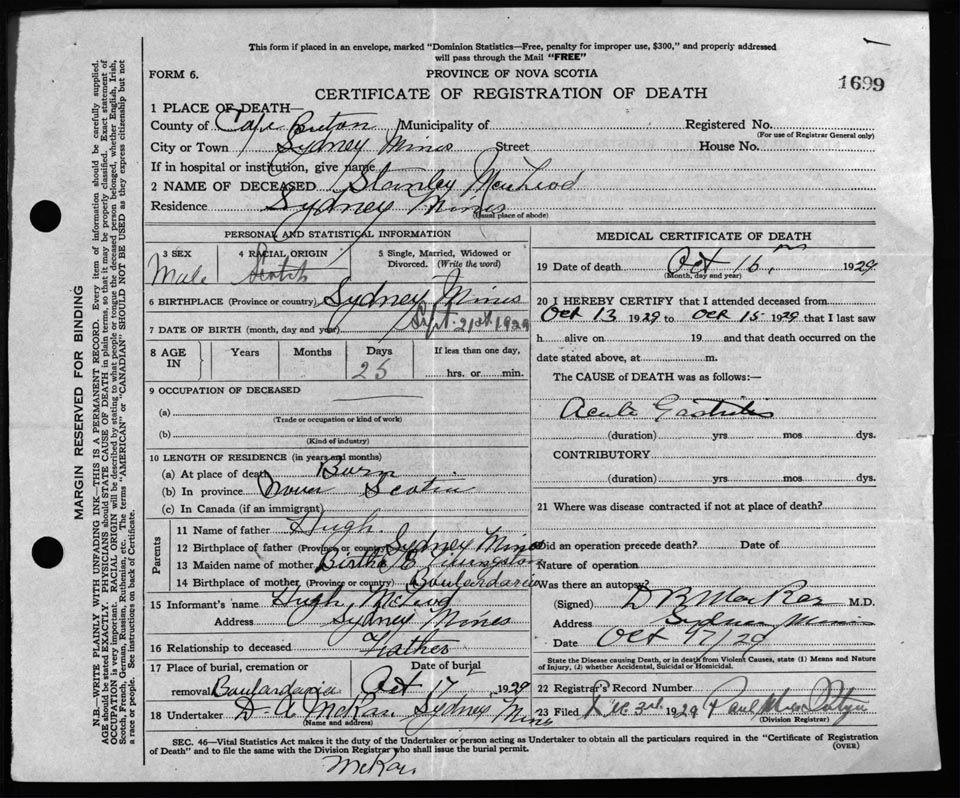 This form if placed in an envelope, marked "Dominion Statistics—Free, penalty for improper use, $300," and properly addressed
will pass through the Mail "FREE"
FORM 6.
PROVINCE OF NOVA SCOTIA
1699
CERTIFICATE OF REGISTRATION OF DEATH
1 PLACE OF DEATH—
County of Cape Breton Municipality of Registered No.
(For use of Registrar General only)
City or Town Sydney Mines Street House No.
If in hospital or institution, give name
2 NAME OF DECEASED Stanley MacLeod
Residence Sydney Mines
(Usual place of abode)
PERSONAL AND STATISTICAL INFORMATION
3 SEX 4 RACIAL ORIGIN 5 Single, Married, Widowed or
Divorced. (Write the word)
Male Scotch
6 BIRTHPLACE (Province or country) Sydney Mines
7 DATE OF BIRTH (month, day and year) Sept. 21st 1929
8 AGE IN Years Months Days If less than one day,
25 hrs. or min.
9 OCCUPATION OF DECEASED
(a)
(Trade or occupation or kind of work)
(b)
(Kind of industry)
10 LENGTH OF RESIDENCE (in years and months)
(a) At place of death Born
(b) In province Nova Scotia
(c) In Canada (if an immigrant)
Parents
11 Name of father Hugh
12 Birthplace of father (Province or country) Sydney Mines
13 Maiden name of mother Bertha E Livingston
14 Birthplace of mother (Province or country) Boulardarie
15 Informant's name Hugh McLeod
Address Sydney Mines
16 Relationship to deceased Father
17 Place of burial, cremation or Date of burial
removal Boulardarie Oct 17, 1929
18 Undertaker D. A McRae Sydney Mines
(Name and address)
MEDICAL CERTIFICATE OF DEATH
19 Date of death Oct 15, 1929
(Month, day and year)
20 I HEREBY CERTIFY that I attended deceased from
Oct 13 1929 to Oct 15 1929 that I last saw
h alive on 19 and that death occurred on the
date stated above, at m.
The CAUSE of DEATH was as follows:—
Acute Gastritis
(duration) yrs mos dys.
CONTRIBUTORY
(duration) yrs mos dys.
21 Where was disease contracted if not at place of death?
Did an operation precede death? Date of
Nature of operation
Was there an autopsy?
(Signed) D B MacRae M.D.
Address Sydney Mines
Date Oct 17/29
State the Disease causing Death, or in death from Violent Causes, state (1) Means and Nature
of Injury, (2) whether Accidental, Suicidal or Homicidal.
22 Registrar's Record Number
23 Filed Dec 3rd 1929 Paul
(Division Registrar)
SEC. 46—Vital Statistics Act makes it the duty of the Undertaker or person acting as Undertaker to obtain all the particulars required in the "Certificate of Registration
of Death" and to file the same with the Division Registrar who shall issue the burial permit.
(OVER)
McRae.
MARGIN RESERVED FOR BINDING
N.B.—WRITE PLAINLY WITH UNFADING INK—THIS IS A PERMANENT RECORD. Every item of information should be carefully supplied.
AGE should be stated EXACTLY. PHYSICIANS should STATE CAUSE OF DEATH in plain terms, so that it may be properly classified. Exact statement of
OCCUPATION is very important. RACIAL ORIGIN will be described by stating to what people or tongue the deceased person belonged, whether English, Irish,
Scotch, French, German, Russian, Ruthenian, etc. The terms "AMERICAN" or "CANADIAN" SHOULD NOT BE USED as they express citizenship but not
a race or people. See instructions on back of Certificate.